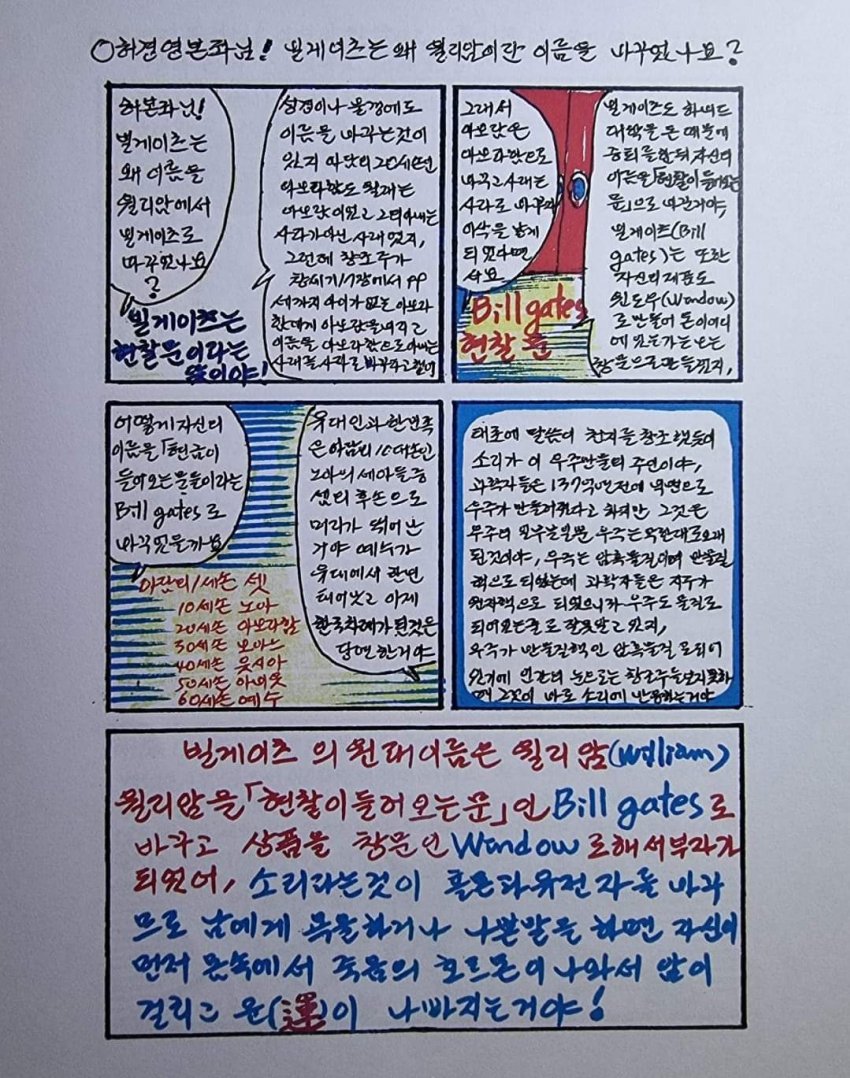 ○허경영본좌님! 빌게이츠는 왜 윌리암이란 이름을 바꾸었나요?
허본좌님!
빌게이츠는
왜 이름을
윌리암에서
빌게이츠로
바꾸었나요
?
빌게이츠는
현찰문이라는
뜻이야!
성경이나 불경에도
이름을 바꾸는것이
있지 아담의 20세손인
아브라함도 원래는
아브람이었고 그의아내는
사라가아닌 사래였지,
그런데 창조주가
창세기17장에서 99
세까지 아이가 없는 아브라
한데
이름을 아브라함으로 아내는
사래를 사라로 바꾸라고 했어
그래서
아브람은
아브라함으로
바꾸고 사래는
사라로 바꾸어
이삭을 낳게
되었다면
서요
Bill gates
현찰 문
빌게이츠도 하버드
대학을 돈 때문에
중퇴를한뒤 자신의
이름을「현찰이 들어오는
문」으로 바꾼거야,
빌게이츠(Bill
gates)는 또한
자신의 제품도
윈도우(Window)
로 만들어 돈이어디
에 있는가를 보는
창문으로 만들었지,
어떻게 자신의
이름을「현금이
들어오는문들이라는
Bill gates로
바꾸었을까요
아담의 1세손 셋
10세손 노아
20세손 아브라함
30세손 보아스
40세손 웃시아
50세손 아비웃
60세손 예수
유대인과 한민족
은 아담의 10대손인
노아의 세아들중
셈의 후손으로
머리가 뛰어난
거야 예수가
유대에서
태어났고 이제
한국차례가 된것은
당연한거야
태초에 말씀이 천지를 창조했듯이
소리가 이 우주만물의 주인이야,
과학자들은 137억년전에 빅뱅으로
우주가 만들어졌다고 하지만 그것은
우주의 일부분일뿐 우주는 무한대로오래
된것이야, 우주는 암흑물질이며 반물질
핵으로 되었는데 과학자들은 지구가
원자핵으로 되었으니까 우주도 물질로
되어있는줄로 잘못알고 있지,
우주가 반물질핵인 암흑물질로되어
있기에 인간의 눈으로는 창조주를보지못하
며 그것이 바로 소리에 반응하는거야
빌게이츠의 원래이름은 윌리암(William)
윌리암을「현찰이들어오는문」인 Bill gates로
바꾸고 상품을 창문인 Window로해서부자가
되었어, 소리라는것이 혈은타유전자를 바꾸
므로 남에게 욕을하거나 나쁜말을 하면 자신이
먼저 몸속에서 죽음의 호르몬이나와서 암이
걸리고 운(運)이 나빠지는거야!